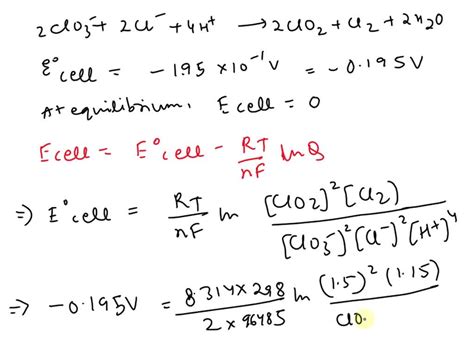 2ClO3⁻ + 2Cl⁻ + 4H⁺ → 2ClO2 + Cl2 + 2H2O
E°cell = -1.95 × 10⁻¹ V = -0.195V
At equilibrium, Ecell = 0
Ecell = E°cell - RT/nF ln Q
⇒ E°cell = RT/nF ln [ClO2]²[Cl2]/[ClO3⁻]²[Cl⁻]²[H⁺]⁴
⇒ -0.195V = 8.314×298/2×96485 ln (1.5)²(1.15)/(10.